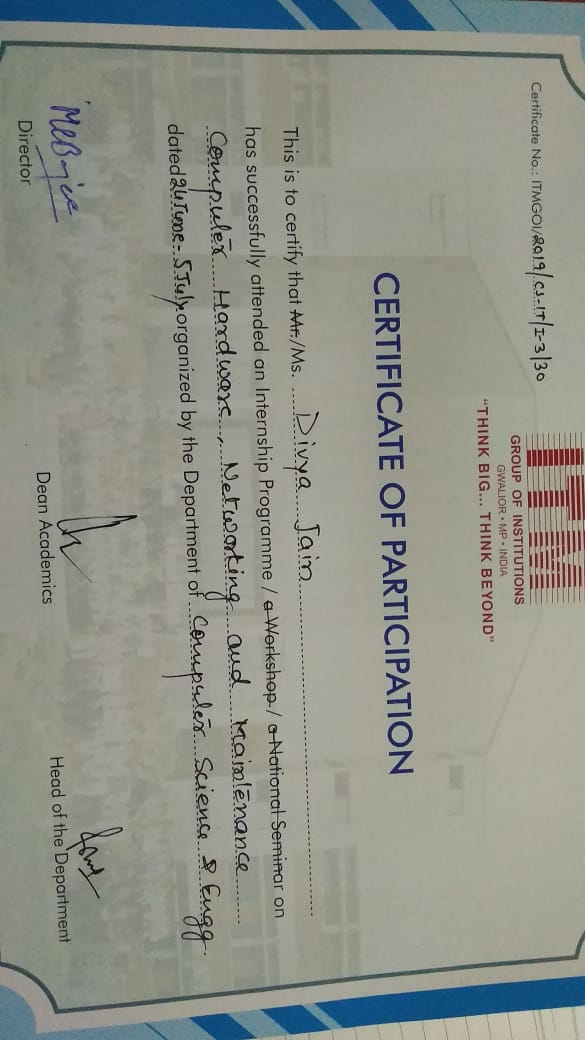 Certificate No.: ITMGOI/2019/CS-IT/I-3/30
ITM
GROUP OF INSTITUTIONS
GWALIOR • MP • INDIA
"THINK BIG... THINK BEYOND"
CERTIFICATE OF PARTICIPATION
This is to certify that Mr./Ms. Divya Jain
has successfully attended an Internship Programme / a Workshop / a National Seminar on
Computer Hardware, Networking and Maintenance
dated 24 June - 5 July organized by the Department of Computer Science & Engg.
Director
Dean Academics
Head of the Department